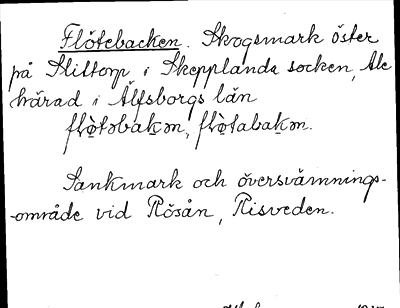 Flötebacken. Skogsmark öster
på Slittorp i Skepplanda socken, Ale
härad i Älfsborgs län
flò̤təbakən, flò̤tabakən.
Sankmark och översvämnings-
-område vid Rösån, Risveden.